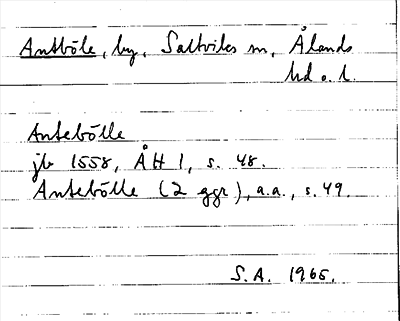 Antböle, by, Saltviks sn, Ålands
hd o. l.
Antebölle
jb 1558, ÅH 1, s. 48.
Antebölle (2 ggr), a.a., s. 49.
S.A. 1965.